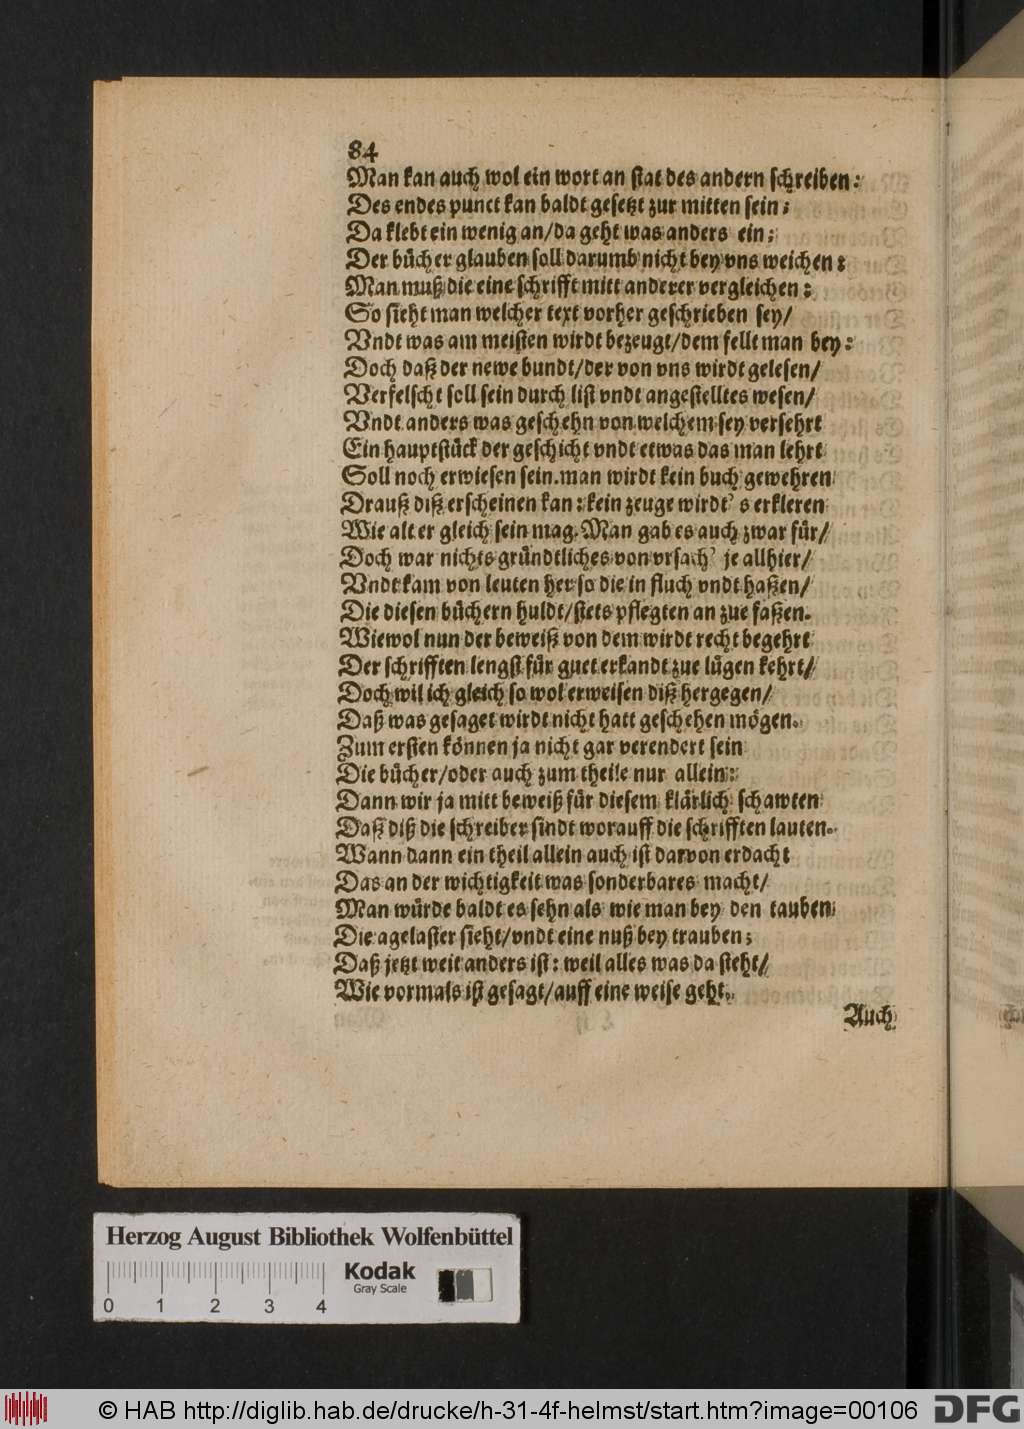 84
Man kan auch wol ein wort an stat des andern schreiben:
Des endes punct kan baldt gesetzt zur mitten sein;
Da klebt ein wenig an/da geht was anders ein;
Der bücher glauben soll darumb nicht bey vns weichen:
Man muß die eine schrifft mitt anderer vergleichen:
So sieht man welcher text vorher geschrieben sey/
Vndt was am meisten wirdt bezeugt/dem fellt man bey:
Doch daß der newe bundt/der von vns wirdt gelesen/
Verfelscht soll sein durch list vndt angestelltes wesen/
Vndt anders was geschehn von welchem sey versehrt
Ein hauptstück der geschicht vndt etwas das man lehrt
Soll noch erwiesen sein. man wirdt kein buch gewehren
Drauß diß erscheinen kan: kein zeuge wirdt's erkleren
Wie alt er gleich sein mag. Man gab es auch zwar für/
Doch war nichts gründtliches von vrsach' je allhier/
Vndt kam von leuten her so die in fluch vndt haßen/
Die diesen büchern huldt/stets pflegten an zue faßen.
Wiewol nun der beweiß von dem wirdt recht begehrt
Der schrifften lengst für guet erkandt zue lügen kehrt/
Doch wil ich gleich so wol erweisen diß hergegen/
Daß was gesaget wirdt nicht hatt geschehen mögen.
Zum ersten können ja nicht gar verendert sein
Die bücher/oder auch zum theile nur allein:
Dann wir ja mitt beweiß für diesem klärlich schawten
Daß diß die schreiber sindt worauff die schrifften lauten.
Wann dann ein theil allein auch ist darvon erdacht
Das an der wichtigkeit was sonderbares macht/
Man würde baldt es sehn als wie man bey den tauben
Die agelaster sieht/vndt eine nuß bey trauben;
Daß jetzt weit anders ist: weil alles was da steht/
Wie vormals ist gesagt/auff eine weise geht.
Auch
Herzog August Bibliothek Wolfenbüttel
Kodak
Gray Scale
0 1 2 3 4
© HAB http://diglib.hab.de/drucke/h-31-4f-helmst/start.htm?image=00106
DFG